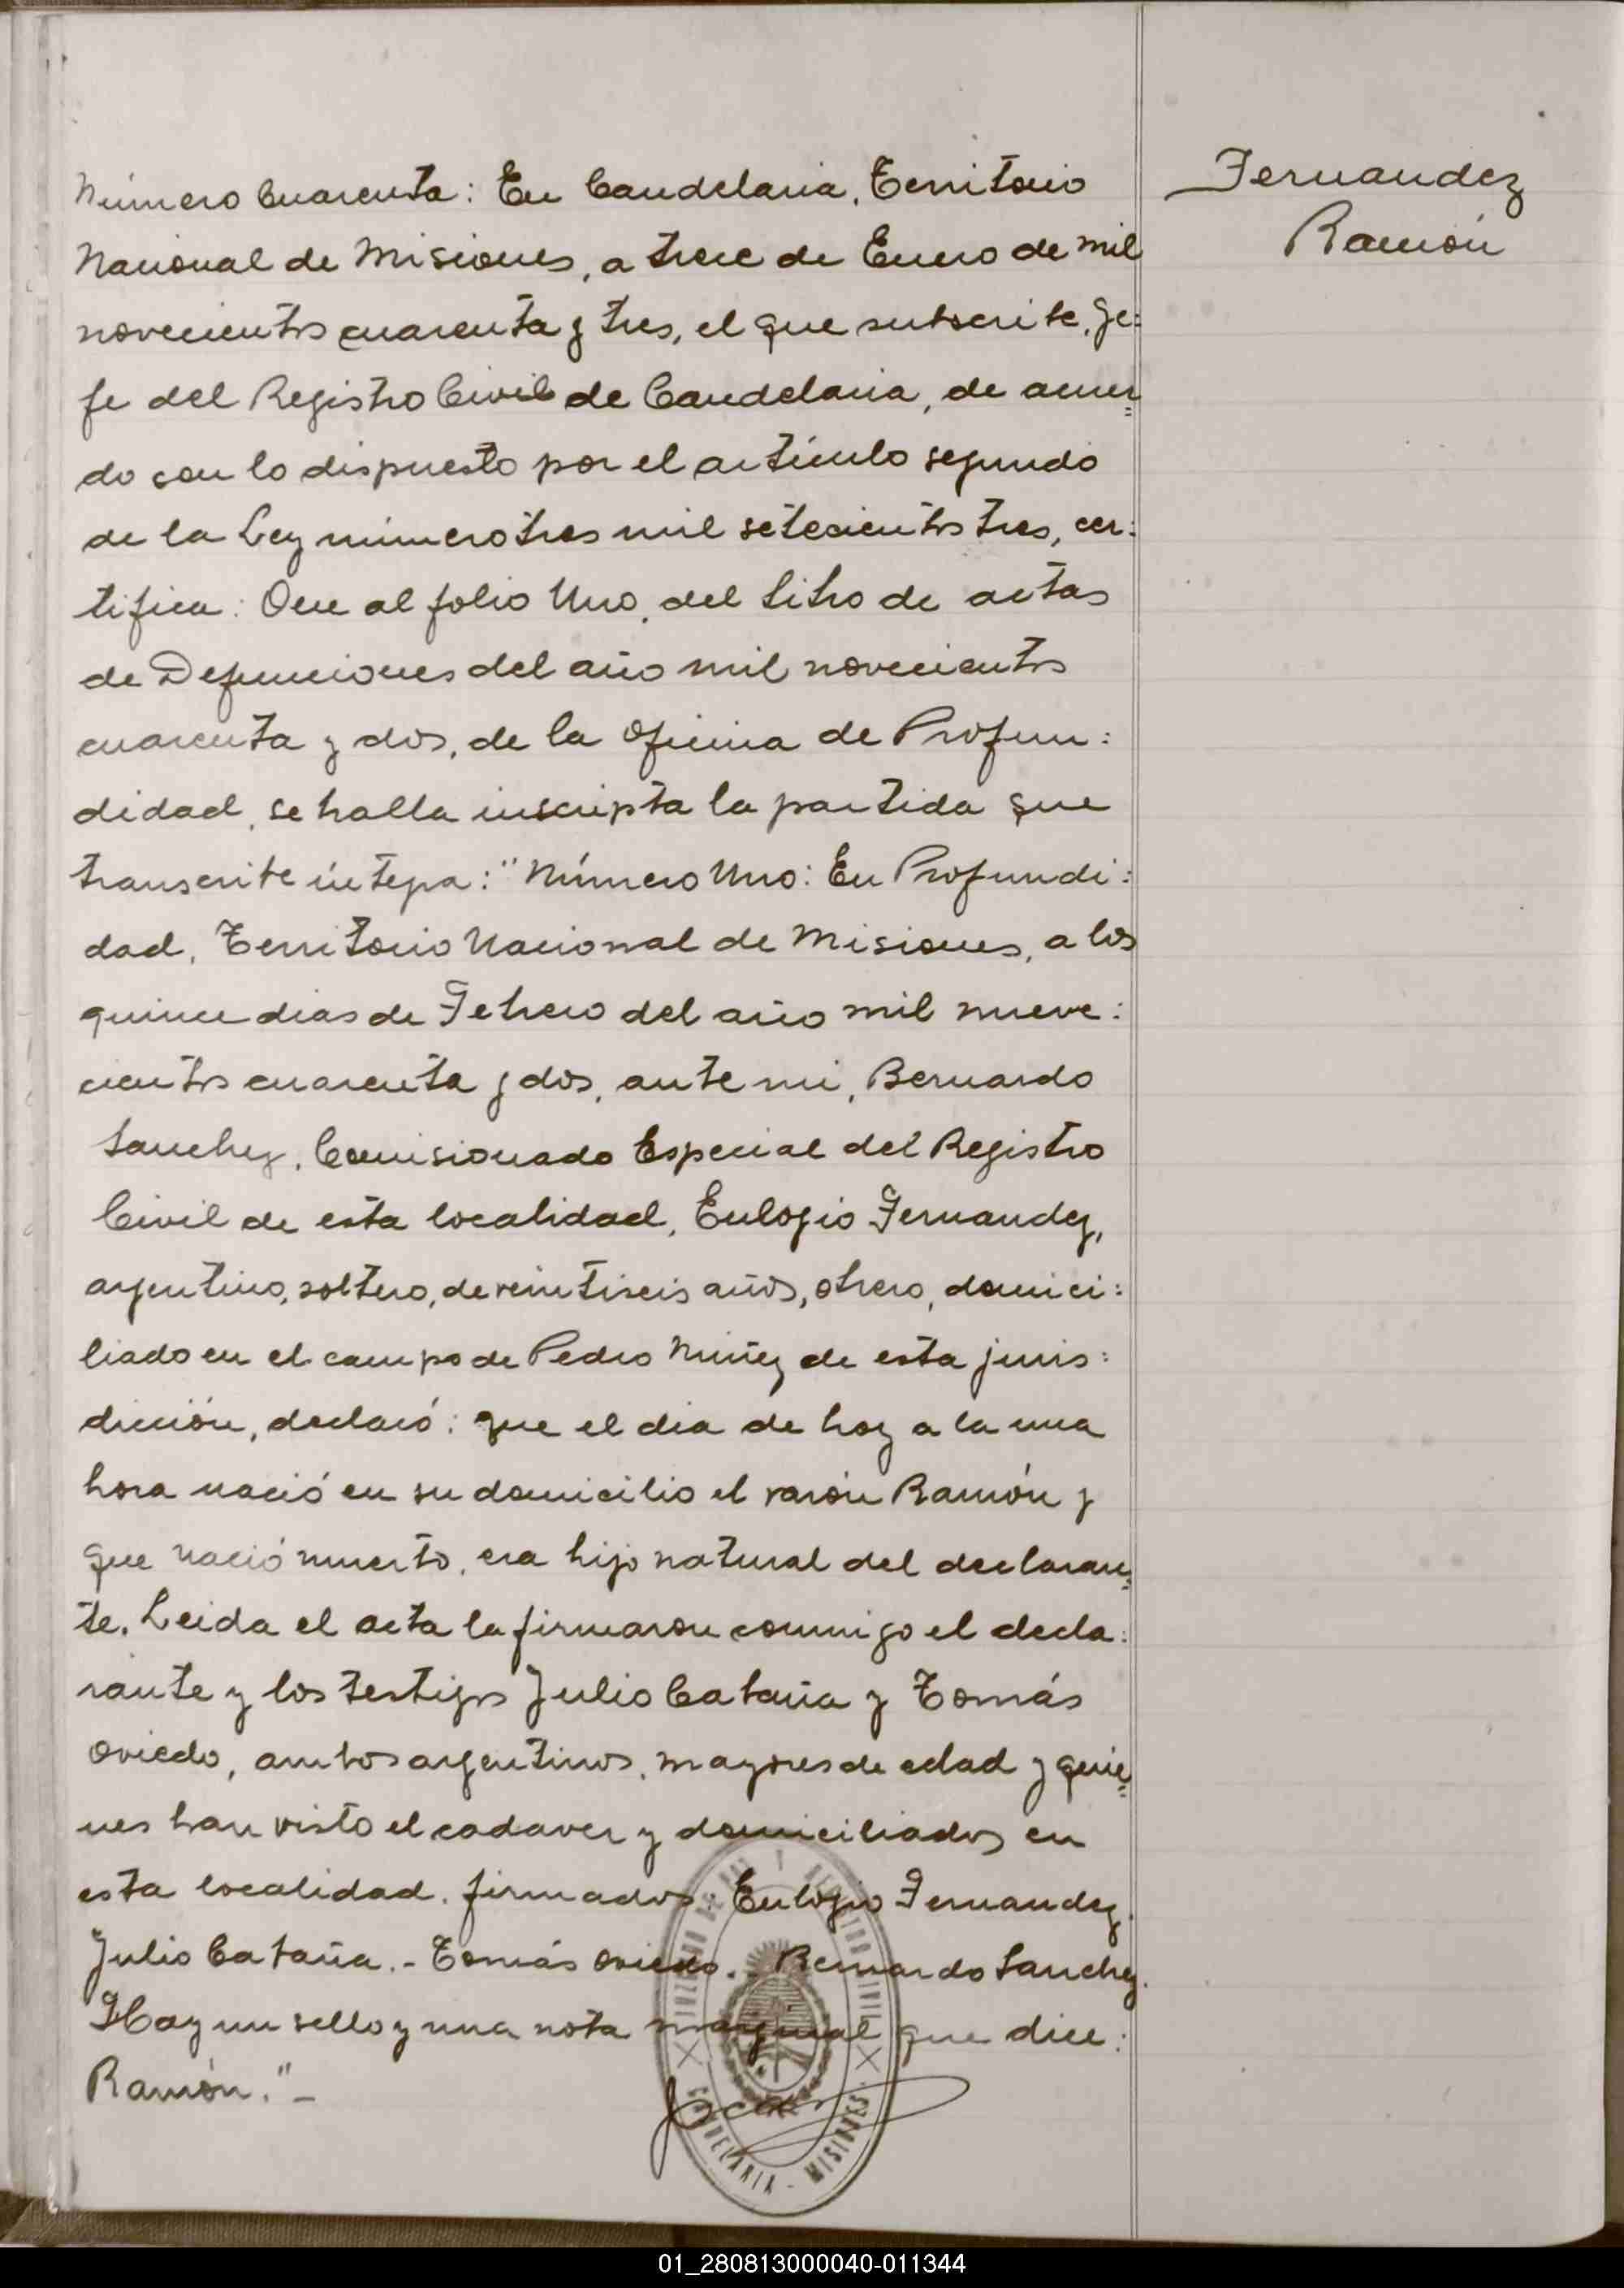 Número Cuarenta: En Candelaria, Territorio
Nacional de Misiones, a trece de Enero de mil
novecientos cuarenta y tres, el que subscribe, Je:
fe del Registro Civil de Candelaria, de acuer=
do con lo dispuesto por el artículo segundo
de la Ley número tres mil setecientos tres, cer:
tifica: Que al folio Uno, del libro de actas
de Defunciones del año mil novecientos
cuarenta y dos, de la oficina de Profun:
didad, se halla inscripta la partida que
transcribe íntegra: "Número Uno: En Profundi:
dad, Territorio Nacional de Misiones, a los
quince dias de Febrero del año mil nueve:
cientos cuarenta y dos, ante mi, Bernardo
Sanchez, Comisionado Especial del Registro
Civil de esta localidad, Eulogio Fernandez,
argentino, soltero, de veintiseis años, obrero, domici:
liado en el campo de Pedro Nuñez de esta juris:
dicción, declaró: que el dia de hoy a la una
hora nació en su domicilio el varón Ramón y
que nació muerto, era hijo natural del declaran=
te. Leida el acta la firmaron conmigo el decla:
rante y los testigos Julio Cataña y Tomás
Oviedo, ambos argentinos, mayores de edad y quie=
nes han visto el cadaver y domiciliados en
esta localidad. firmados: Eulogio Fernandez.
Julio Cataña.- Tomás Oviedo.- Bernardo Sanchez.
Hay un sello y una nota marginal que dice:
Ramón."-
Fernandez
Ramón
JUZGADO DE PAZ Y REGISTRO CIVIL
CANDELARIA - MISIONES
01_280813000040-011344